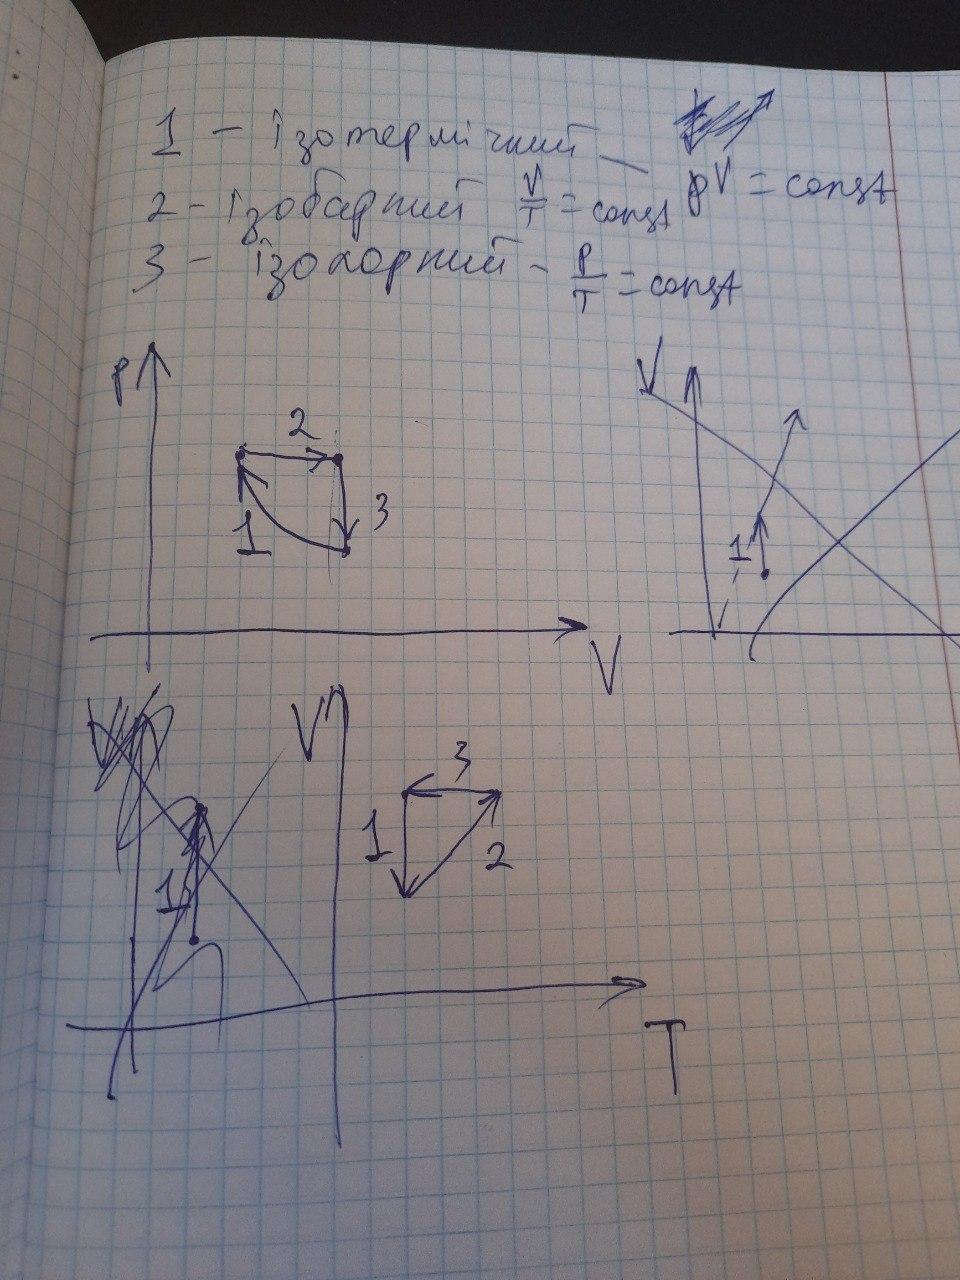 1 - ізотермічний - pV = const
2 - ізобарний V/T = const
3 - ізохорний - P/T = const
P
2
1
3
V
V
1
V
3
1
2
1
T